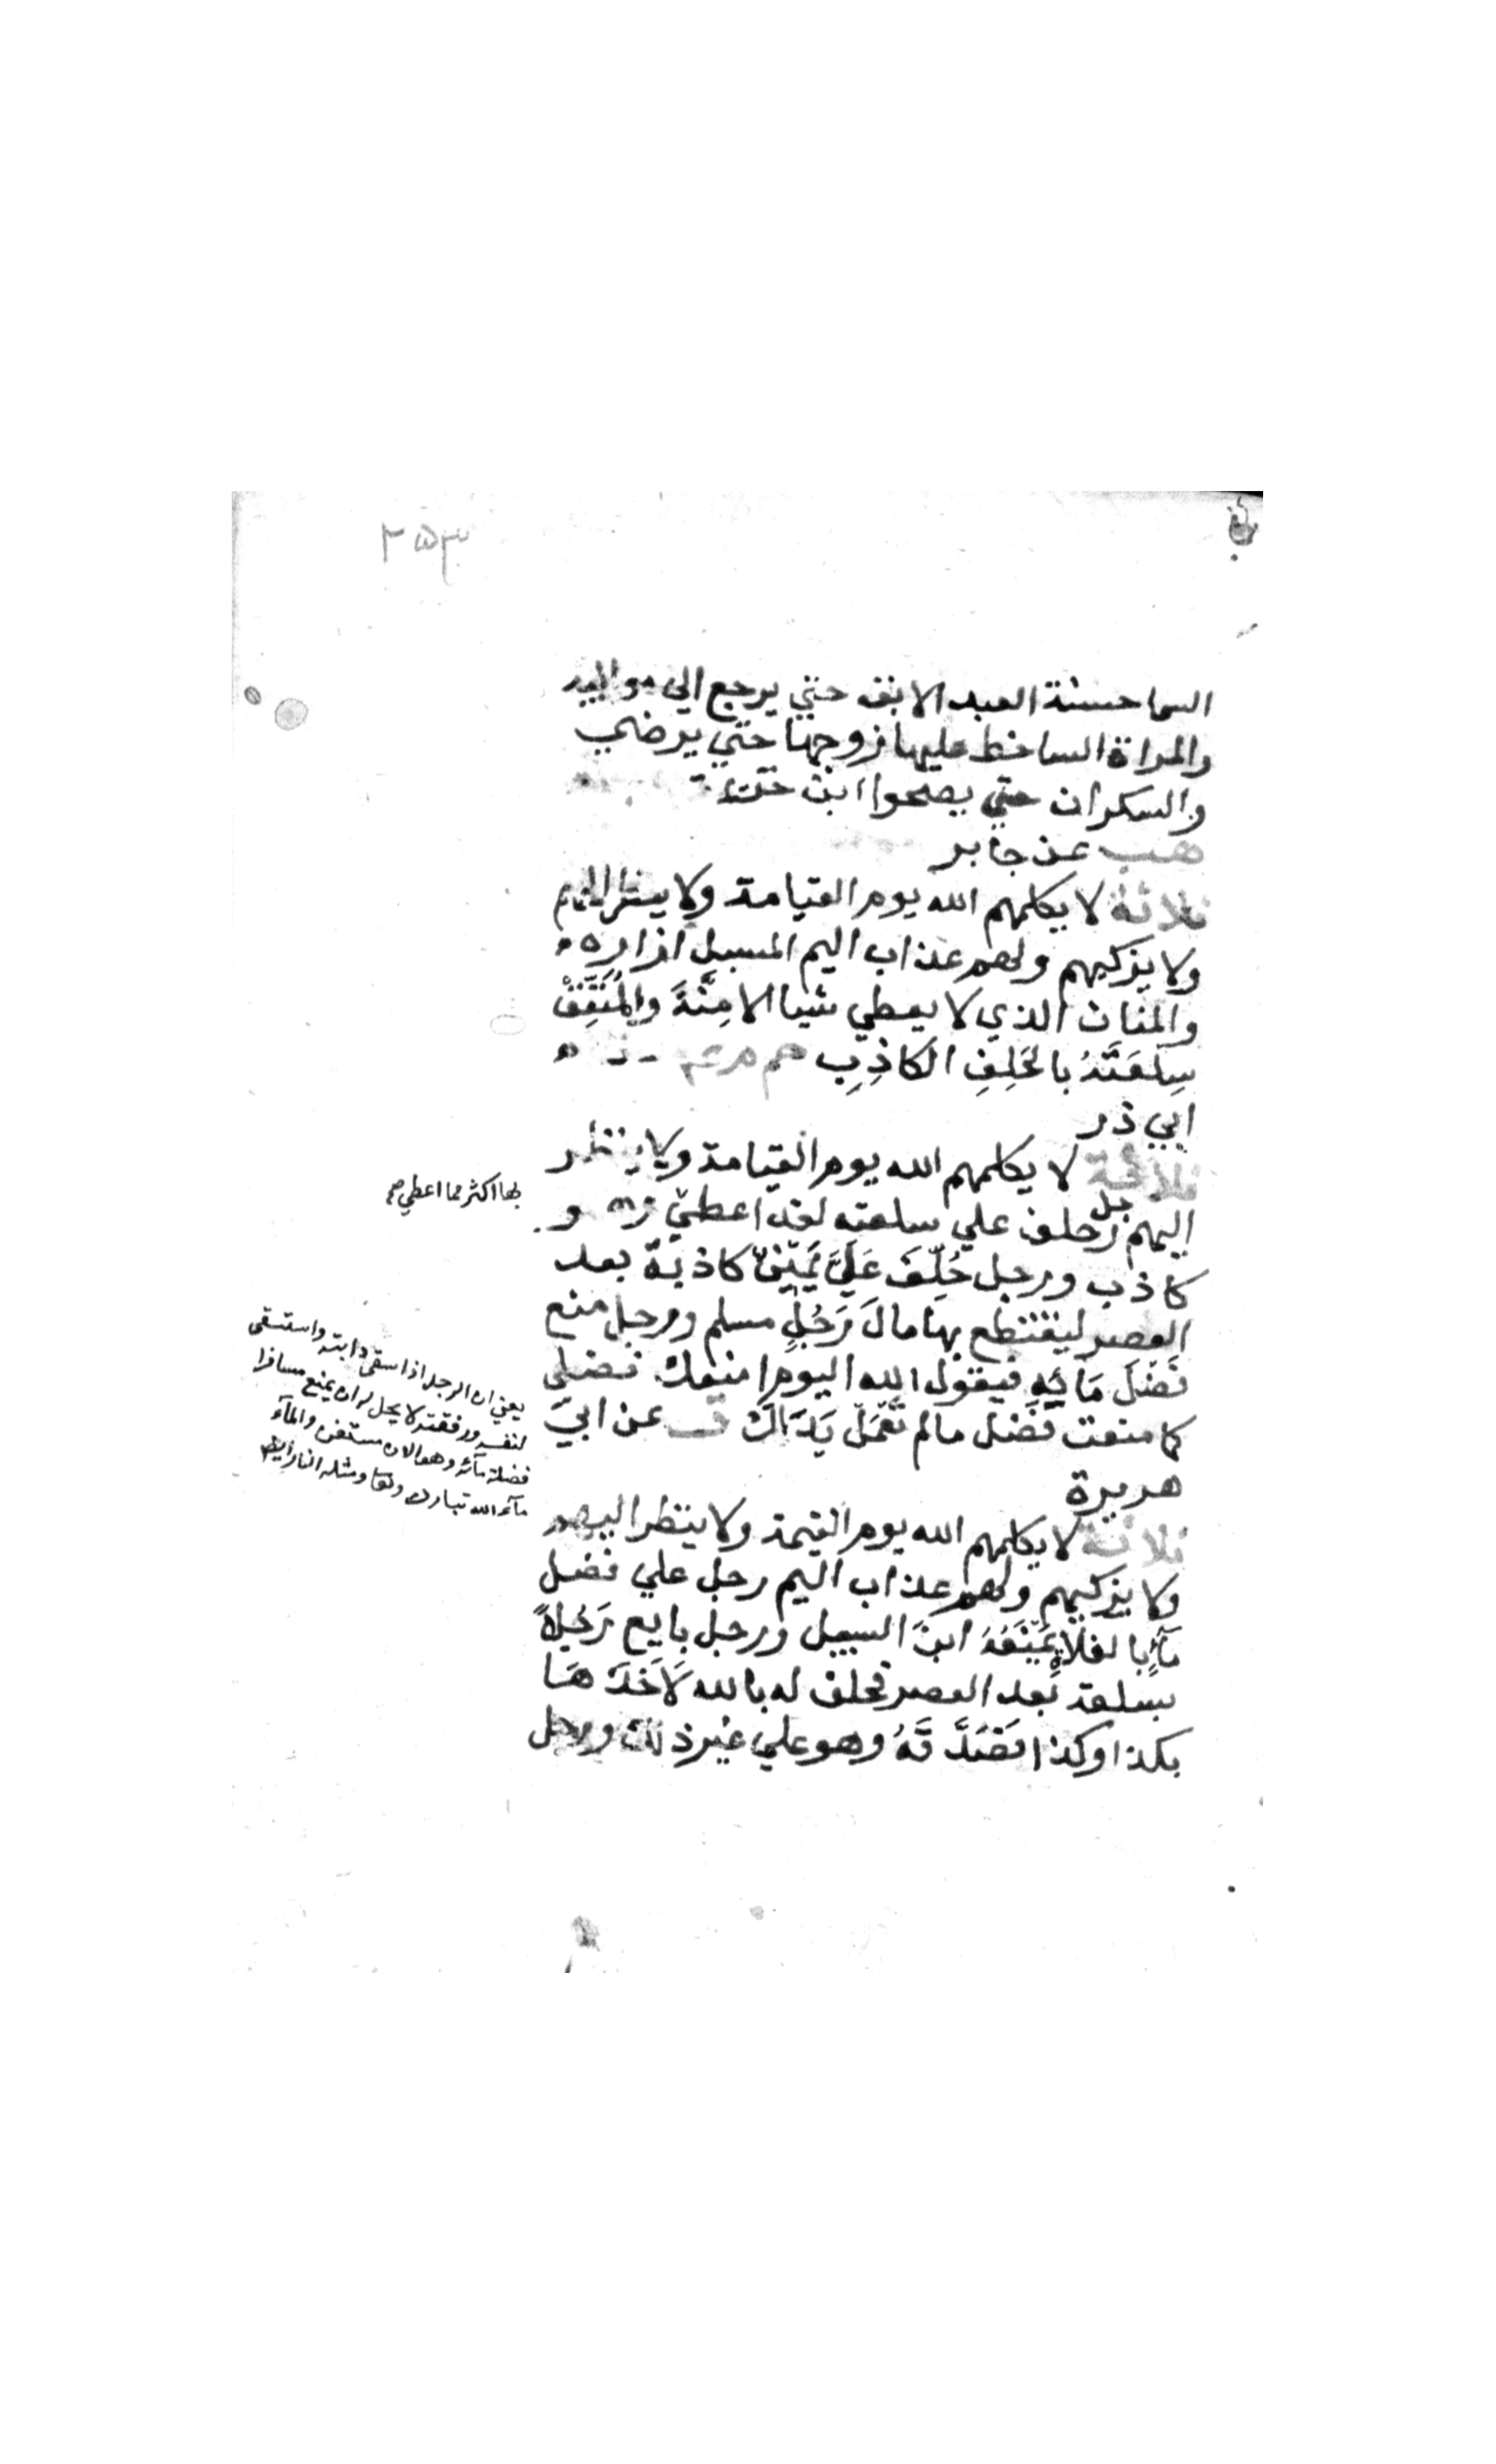 ٢٥٣
السما حسنة العبد الابق حتي يرجع الي مواليه
والمراة الساخط عليها زوجها حتي يرضي
والسكران حتي يصحوا ابن خزيمة
هب عن جابر
ثلاثة لا يكلمهم الله يوم القيامة ولا ينظر اليهم
ولا يزكيهم ولهم عذاب اليم المسبل ازاره
والمنان الذي لا يعطي شيا الا مِنَّةً والمُنَفِّقْ
سِلعَتَهُ بالحَلِفِ الكاذِبِ حم م
ابي ذر
ثلاثة لا يكلمهم الله يوم القيامة ولا ينظر
اليهم رجل حلف علي سلعته لقد اعطي و
كاذب ورجل حُلِّفَ عَلَيَّ يَمِيْنٍ كاذبة بعد
العصر ليقتطع بها مالَ رَجُلٍ مسلم ورجل منع
فَضْلَ مَائِهِ فيقول الله اليوم امنعك فضلي
كما منعت فضل مالم تَعْمَلْ يَدَاكَ ق عن ابي
هريرة
ثلاثة لا يكلمهم الله يوم القيمة ولا ينظر اليهم
ولا يزكيهم ولهم عذاب اليم رجل علي فضل
مآءٍ بالفلاةِ يَمْنَعُهُ ابنَ السبيل ورجل بايع رَجُلاً
بسلعة بَعد العصر فحلف له بالله لَاَخَذَهَا
بكذا وكذا فَصَدَّقَهُ وهو علي غير ذلك ورجل
بها اكثر مما اعطي صح
يعني ان الرجل اذا سقى دابته واستسقى
لنفسه ورفقته لا يحل له ان يمنع مسافرا
فضلة مآئه وهو الان مستغن والمآء
مآء الله تبارك وتعا ومثله النار ايضا